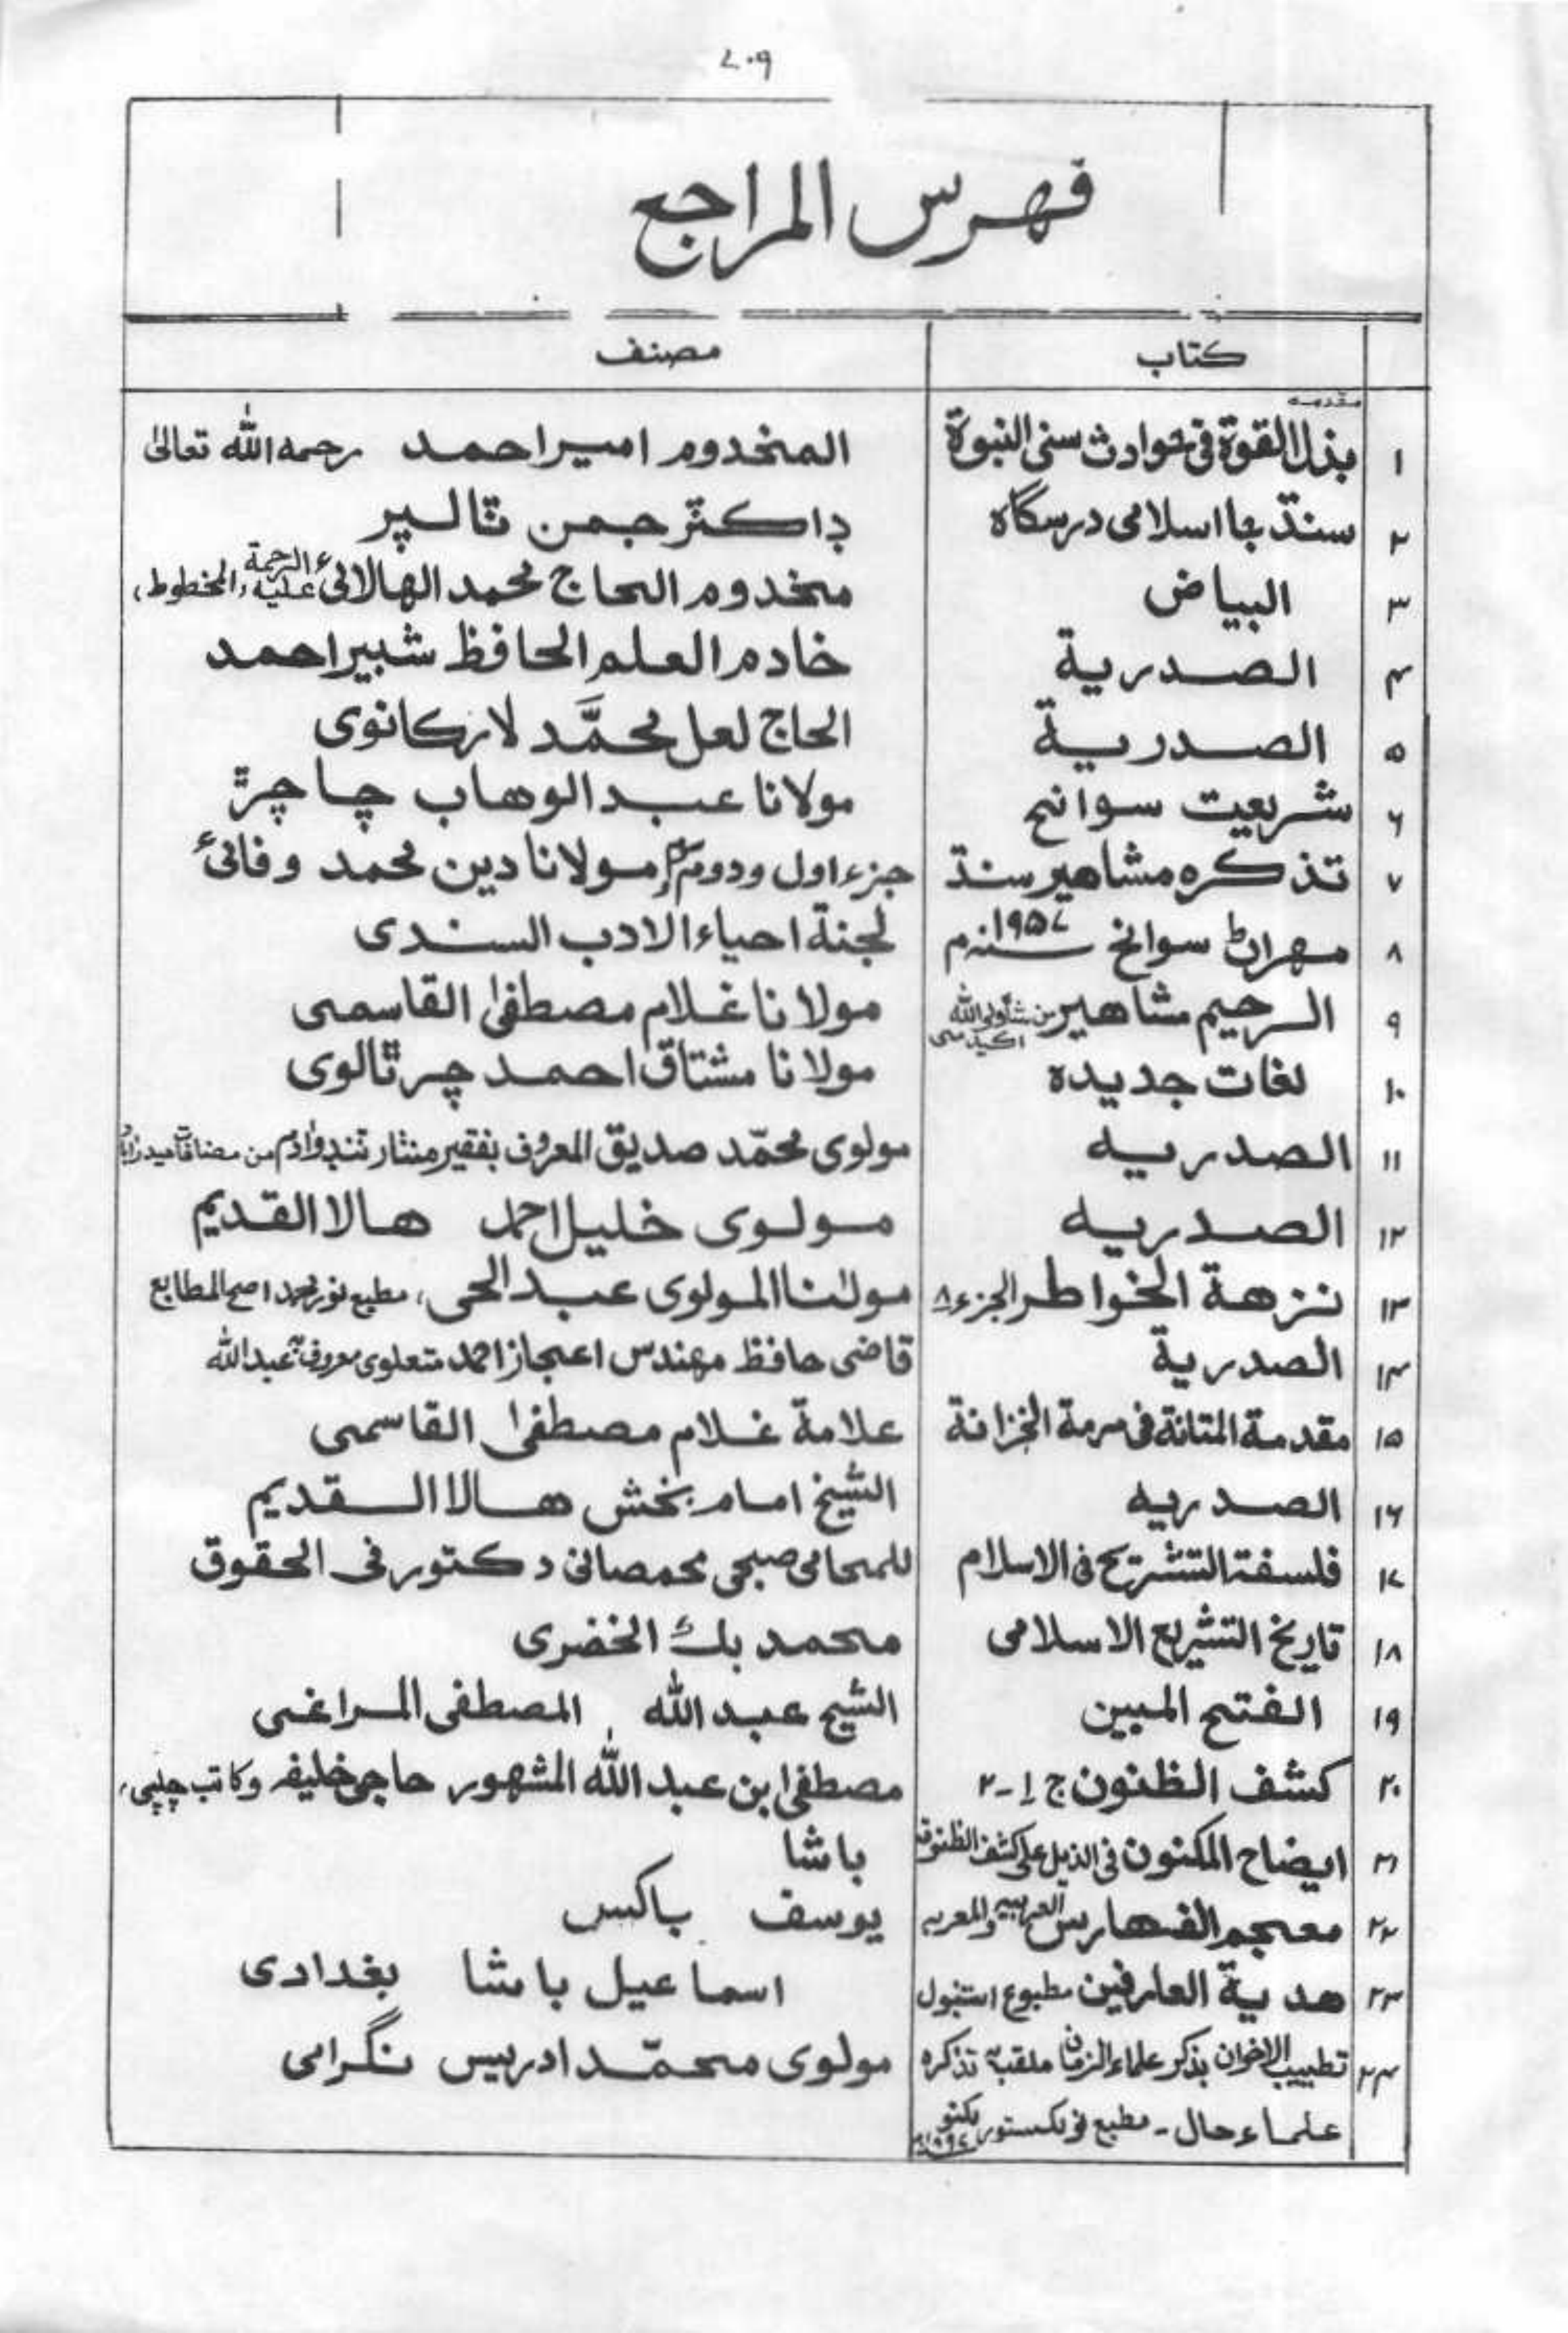 ۷۰۹
فهرس المراجع
كتاب مصنف
۱ مقدمه بذل القوة فی حوادث سنی النبوة المخدوم امير احمد رحمه الله تعالىٰ
۲ سنڌ جا اسلامی درسگاه ڊاكٽر جمن ٽالپر
۳ البياض مخدوم الحاج محمد الهالائی علیه الرحمة (المخطوط)
۴ الصدرية خادم العلم الحافظ شبير احمد
۵ الصدرية الحاج لعل محمَّد لاركانوی
۶ شريعت سوانح مولانا عبد الوهاب چاچڙ
۷ تذكره مشاهير سنڌ جزء اول و دوم مولانا دين محمد وفائی
۸ مهراڻ سوانح ۱۹۵۷ سنہ م لجنة احياء الادب السندی
۹ الرحيم مشاهير من شاه ولی الله اکیڈمی مولانا غلام مصطفیٰ القاسمی
۱۰ لغات جديده مولانا مشتاق احمد چرٿالوی
۱۱ الصدريه مولوی محمّد صديق المعروف بفقير منٺار ٽنڊو آدم من مضافات حیدرآباد
۱۲ الصدريه مولوی خليل احمد هالا القديم
۱۳ نزهة الخواطر الجزء ۸ مولٰنا المولوی عبد الحی، مطبع نور محمد اصح المطابع
۱۴ الصدرية قاضی حافظ مهندس اعجاز احمد متعلوی معروف بہ عبدالله
۱۵ مقدمة المتانة فی مرمة الخزانة علامة غلام مصطفیٰ القاسمی
۱۶ الصدريه الشيخ امام بخش هالا القديم
۱۷ فلسفة التشريع فی الاسلام للمحامی صبحی محمصانی دكتور فی الحقوق
۱۸ تاريخ التشريع الاسلامی محمد بك الخضری
۱۹ الفتح المبين الشيخ عبد الله المصطفی المراغی
۲۰ كشف الظنون ج ۱-۲ مصطفیٰ بن عبد الله المشهور حاجی خليفه وكاتب چلپی،
۲۱ ايضاح المكنون فی الذيل علی كشف الظنون باشا
۲۲ معجم الفهارس العربيه والمعربه يوسف باكس
۲۳ هدية العارفين مطبوع استنبول اسماعيل باشا بغدادی
۲۴ تطييب الاخوان بذكر علماء الزمان ملقب بہ تذكره مولوی محمّد ادريس نگرامی
علماء حال - مطبع